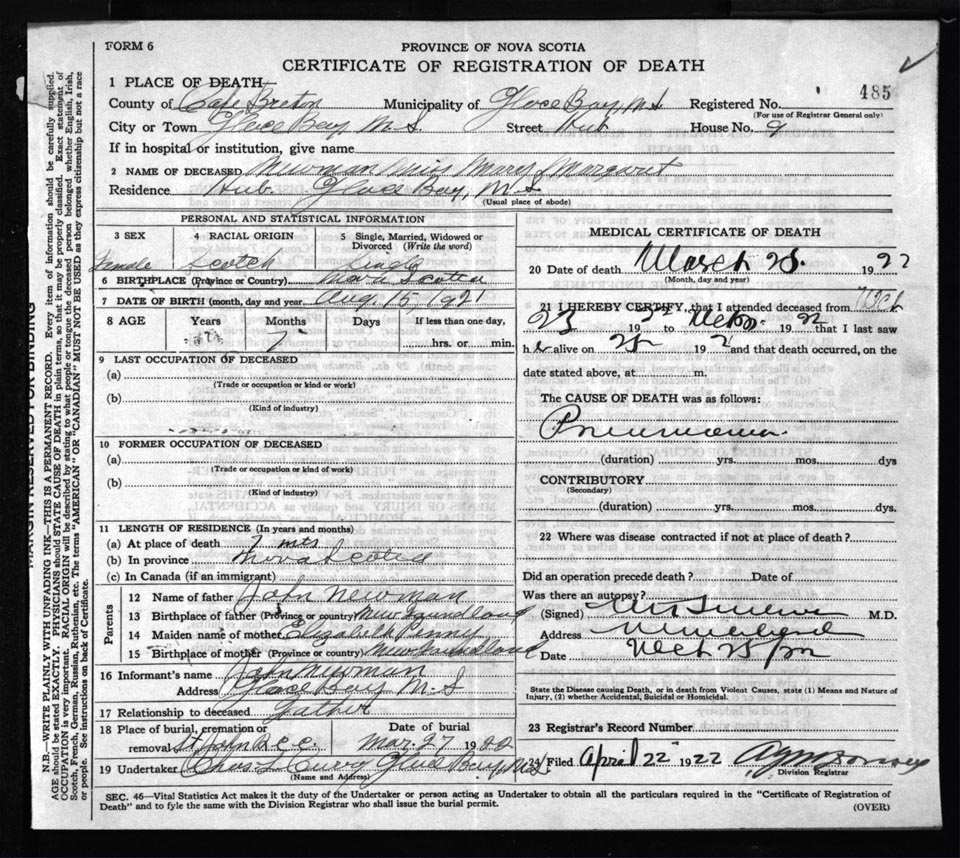 FORM 6
PROVINCE OF NOVA SCOTIA
CERTIFICATE OF REGISTRATION OF DEATH
485
1 PLACE OF DEATH
County of Cape Breton Municipality of Glace Bay, N.S. Registered No.
(For use of Registrar General only)
City or Town Glace Bay N.S. Street Hub House No. 9
If in hospital or institution, give name
2 NAME OF DECEASED Newman Mary Margaret
Residence Hub. Glace Bay, N.S.
(Usual place of abode)
PERSONAL AND STATISTICAL INFORMATION
3 SEX
4 RACIAL ORIGIN
5 Single, Married, Widowed or Divorced (Write the word)
Female Scotch Single
6 BIRTHPLACE (Province or Country) Nova Scotia
7 DATE OF BIRTH (month, day and year) Aug. 15, 1921
8 AGE Years Months Days If less than one day,
7 hrs. or min.
9 LAST OCCUPATION OF DECEASED
(a)
(Trade or occupation or kind or work)
(b)
(Kind of industry)
10 FORMER OCCUPATION OF DECEASED
(a)
(Trade or occupation or kind of work)
(b)
(Kind of industry)
11 LENGTH OF RESIDENCE (In years and months)
(a) At place of death 7 mts
(b) In province Nova Scotia
(c) In Canada (if an immigrant)
Parents
12 Name of father John Newman
13 Birthplace of father (Province or country) Newfoundland
14 Maiden name of mother Elizabeth Penny
15 Birthplace of mother (Province or country) Newfoundland
16 Informant's name John Newman
Address Glace Bay N.S
17 Relationship to deceased Father
18 Place of burial, cremation or removal St John Date of burial Mar. 27 1922
19 Undertaker Chas. L Curry Glace Bay, N.S
(Name and Address)
MEDICAL CERTIFICATE OF DEATH
20 Date of death March 25. 1922
(Month, day and year)
21 I HEREBY CERTIFY, that I attended deceased from
23 1922 to 1922 that I last saw
her alive on 25 192 and that death occurred, on the
date stated above, at m.
The CAUSE OF DEATH was as follows:
Pneumonia
(duration) yrs. mos. dys
CONTRIBUTORY
(Secondary)
(duration) yrs. mos. dys.
22 Where was disease contracted if not at place of death?
Did an operation precede death? Date of
Was there an autopsy?
(Signed) M.D.
Address
Date
State the Disease causing Death, or in death from Violent Causes, state (1) Means and Nature of Injury, (2) whether Accidental, Suicidal or Homicidal.
23 Registrar's Record Number
24 Filed April 22 1922
Division Registrar
SEC. 46—Vital Statistics Act makes it the duty of the Undertaker or person acting as Undertaker to obtain all the particulars required in the "Certificate of Registration of
Death" and to fyle the same with the Division Registrar who shall issue the burial permit.
(OVER)
MARGIN RESERVED FOR BINDING
N.B.—WRITE PLAINLY WITH UNFADING INK—THIS IS A PERMANENT RECORD. Every item of information should be carefully supplied.
AGE should be stated EXACTLY. PHYSICIANS should STATE CAUSE OF DEATH in plain terms, so that it may be properly classified. Exact statement of
OCCUPATION is very important. RACIAL ORIGIN will be described by stating to what people or tongue the deceased person belonged whether English, Irish,
Scotch, French, German, Russian, Ruthenian, etc. The terms "AMERICAN" OR "CANADIAN" MUST NOT BE USED as they express citizenship but not a race
or people. See instructions on back of Certificate.